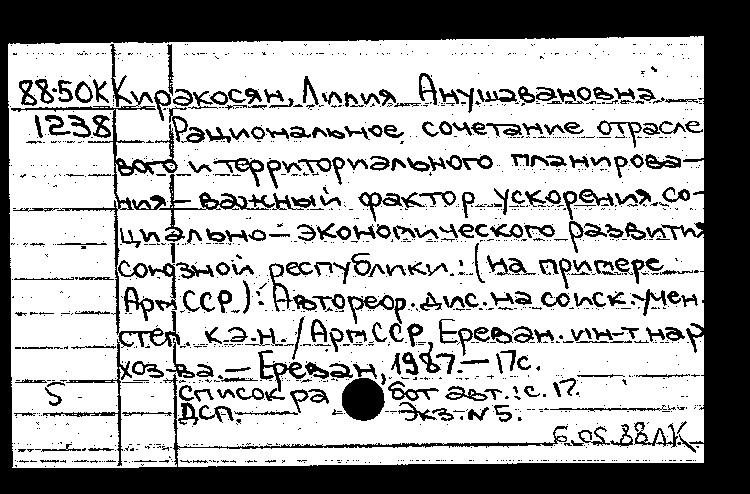 88-50К Киракосян, Лилия Анушавановна
1238 Рациональное сочетание отрасле
вого и территориального планирова-
ния – важный фактор ускорения со-
циально – экономического развития
союзной республики : (на примере
Арм ССР) : Автореф. дис. на соиск. учен.
степ. к.э.н. / АрмССР, Ереван. ин-т нар
хоз-ва. – Ереван, 1987. – 17с.
S список ра бот авт. : с. 17.
ДСП. Экз. N 5.
6.05.88 ЛК